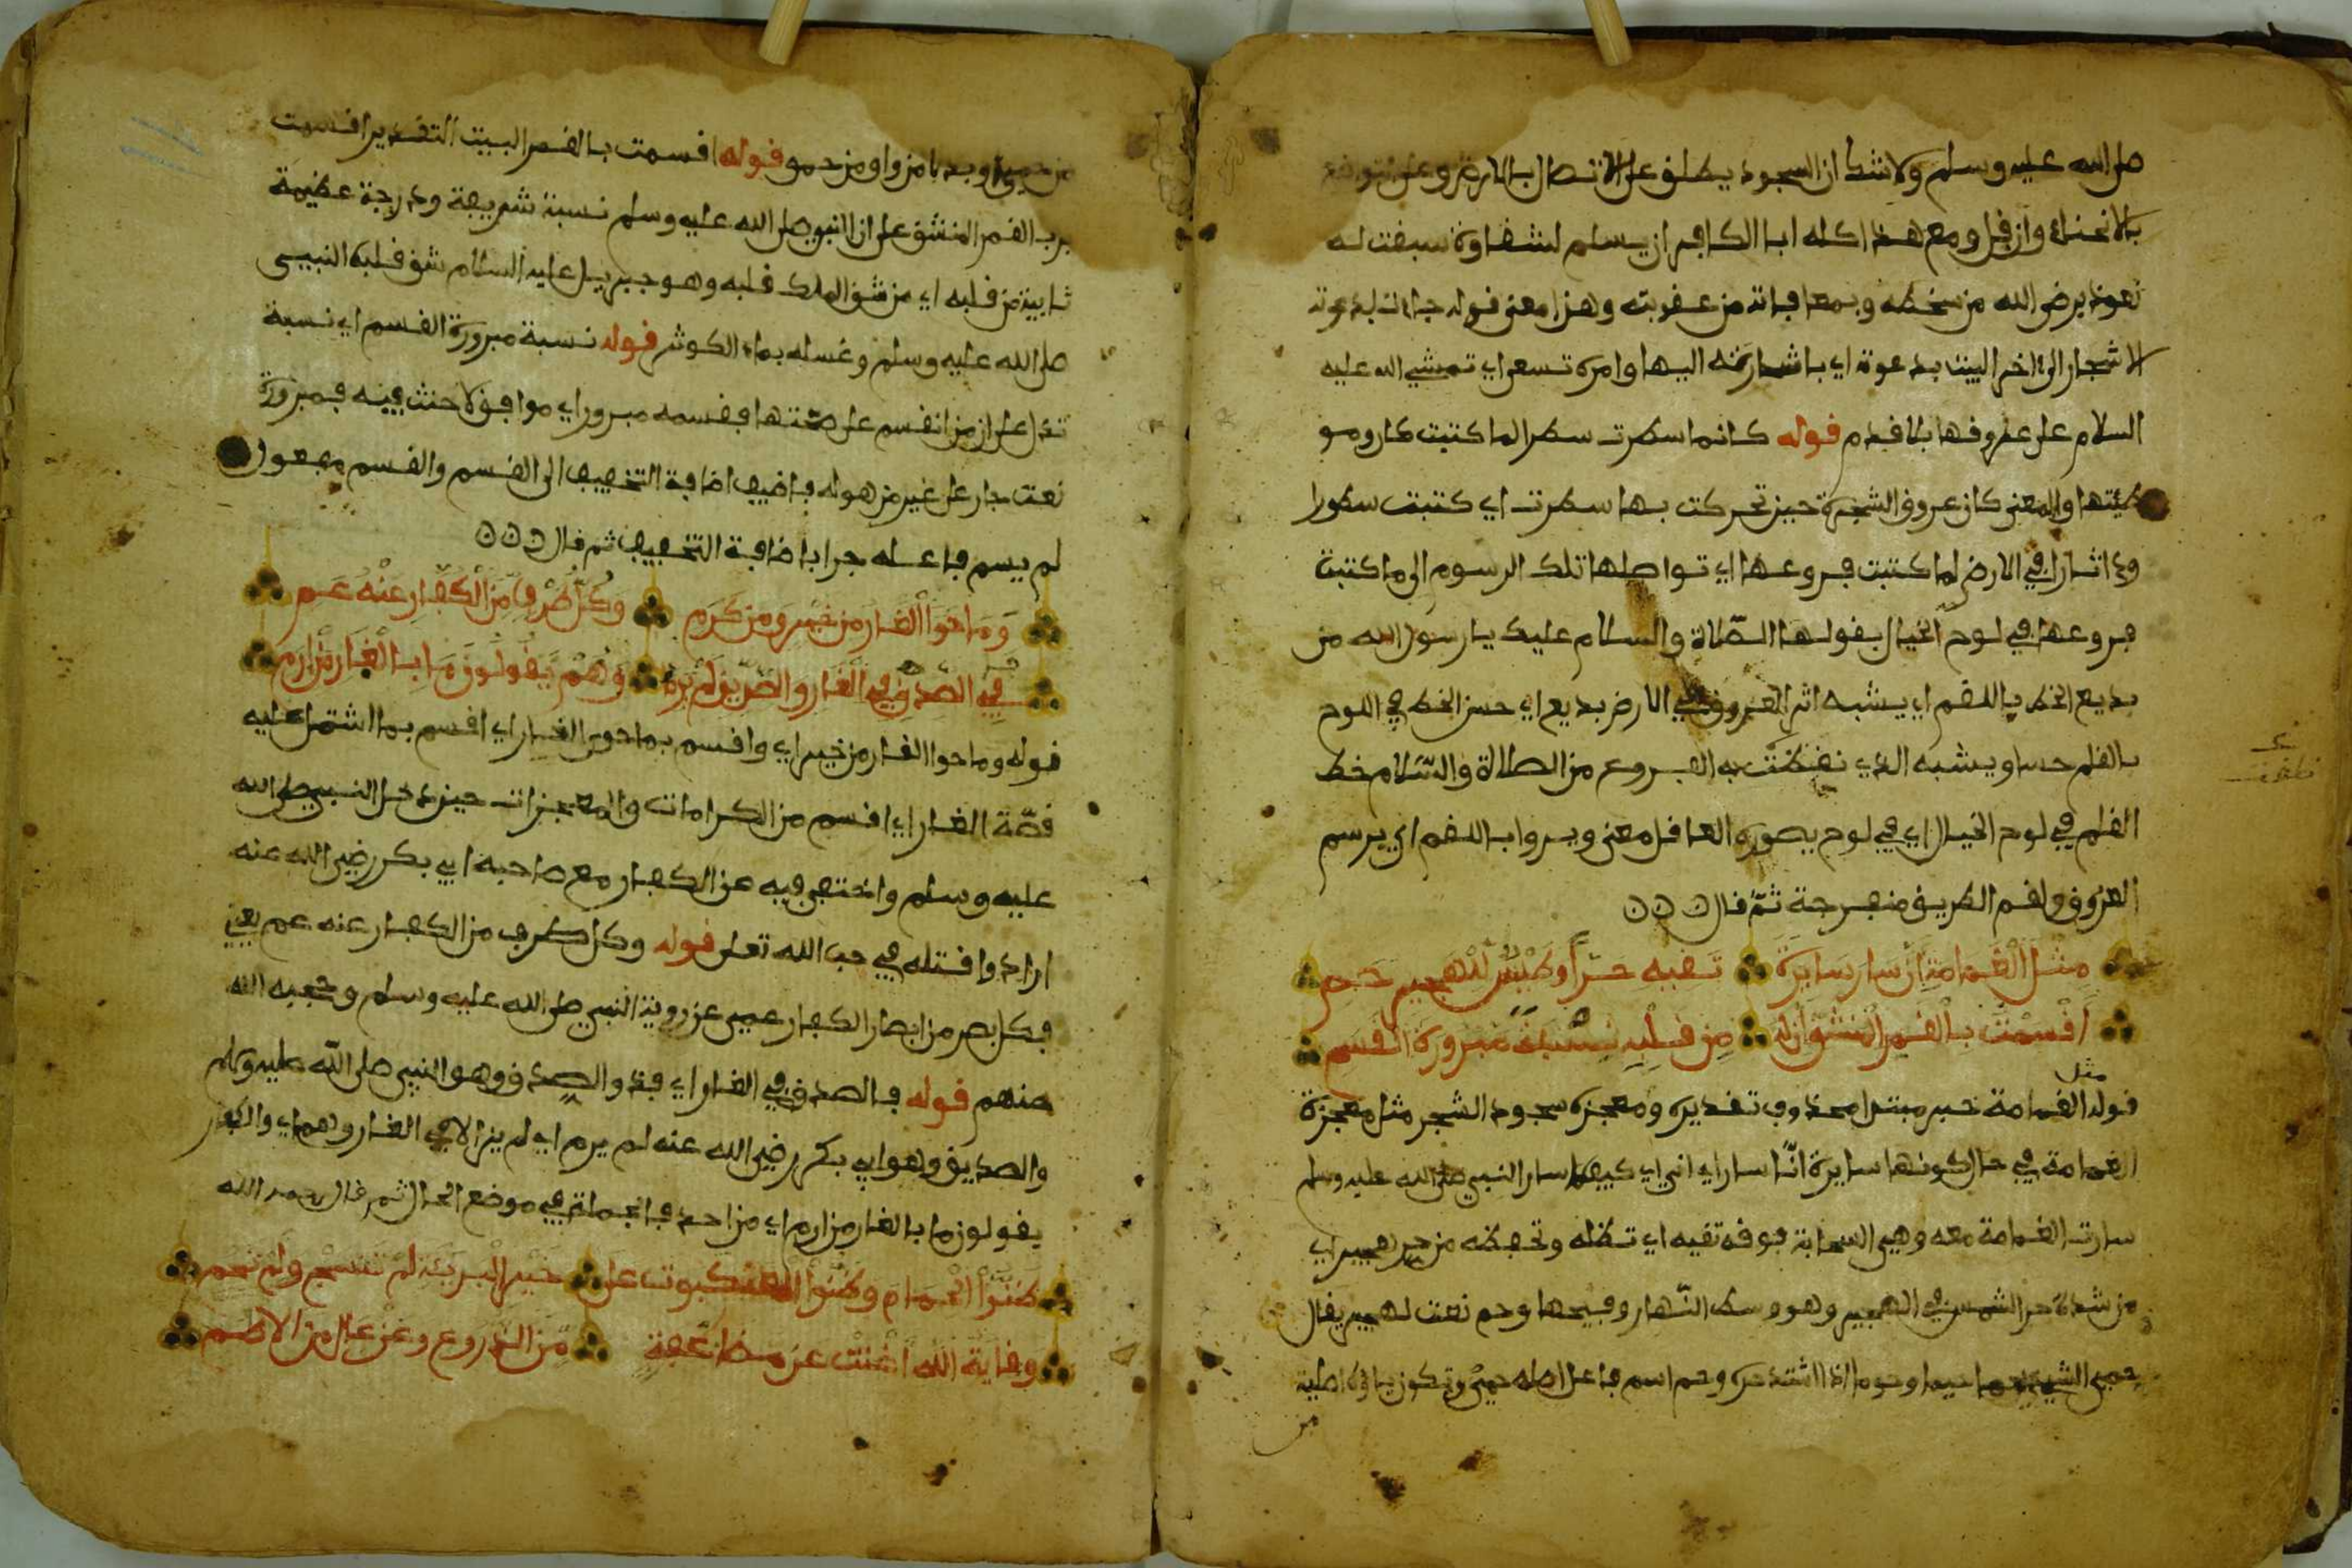 صلى الله عليه وسلم ولا شك ان السجود يطلق على الاتصال بالارض وعلى
بالانحناء وان قل ومع هذا كله ابا الكافر ان يسلم لشقاوة سبقت له
نعوذ برضى الله من سخطه وبمعافاته من عقوبته وهذا معنى قوله جاءت لدعوته
الاشجار الى اخر البيت بدعوة اي باشارته اليها وامره تسعى اي تمشي الله عليه
السلام على عروقها بلا قدم قوله كانما سطرت سطرا لما كتبت
والمعنى كان عروق الشجرة حين تحركت بها سطرت اي كتبت سطورا
في الارض لما كتبت فروعها اي تواصلها تلك الرسوم الى ما كتبت
فروعها في لوح الخيال بقولها الصلاة والسلام عليك يا رسول الله من
بديع الخط باللقم اي يشبه اثر العروق في الارض بديع اي حسن الخط في اللوح
بالقلم حسا ويشبه الذي نطقت به الفروع من الصلاة والسلام خط
القلم في لوح الخيال اي في لوح يصوره العاقل معنى ويروا باللقم اي يرسم
العروق ولقم الطريق منفرجة ثم قال
مثل الغمامة ان سار سايرة تقيه حرا وطيس للهجير حم
اقسمت بالقمر المنشق ان له من قلبه نسبة مبرورة القسم
قوله مثل الغمامة خبر مبتدا محذوف تقديره ومعجزة سجود الشجر مثل معجزة
الغمامة في حال كونها سايرة انا سار اي انى اي كيفما سار النبي صلى الله عليه وسلم
سارت الغمامة معه وهي السحابة فوقه تقيه اي تظله وتحفظه من حر هجير اي
من شدة حر الشمس في الهجير وهو وسط النهار وفيحها وحم نعت لهجير يقال
حمي اذا اشتد حره وحم اسم فاعل اصله حمي وتكون ياؤه اصلية
من
وبدا من واو من حمو قوله اقسمت بالقمر البيت التقدير اقسمت
برب القمر المنشق على ان النبي صلى الله عليه وسلم نسبة شريفة ودرجة عظيمة
ثابتة من قلبه اي من شق الملك قلبه وهو جبريل عليه السلام شق قلبه النبي
صلى الله عليه وسلم وغسله بماء الكوثر قوله نسبة مبرورة القسم اي نسبة
تدل على ان من اقسم على صحتها فقسمه مبرور اي موافق لا حنث فيه فمبرورة
نعت جار على غير من هو له فاضيف اضافة التخفيف الى القسم والقسم مفعول
لم يسم فاعله جر باضافة التخفيف ثم قال
وما حوا الغار من خير ومن كرم وكل طرف من الكفار عنه عم
فالصدق في الغار والصديق لم يرم وهم يقولون ما بالغار من ارم
قوله وما حوا الغار من خير اي واقسم بما حوى الغار اي اقسم بما اشتمل عليه
قصة الغار اي اقسم من الكرامات والمعجزات حين دخل النبي صلى الله
عليه وسلم واختفى فيه عن الكفار مع صاحبه ابي بكر رضي الله عنه
ارادوا قتله في حب الله تعلى قوله وكل طرف من الكفار عنه عم يعني
فكل بصر من ابصار الكفار عمي عن رؤية النبي صلى الله عليه وسلم وحجبه الله
منهم قوله فالصدق في الغار اي فذو الصدق وهو النبي صلى الله عليه وسلم
والصديق وهو ابي بكر رضي الله عنه لم يرم اي لم يزالا في الغار وهم اي والكفار
يقولون ما بالغار من ارم اي من احد فالجملة في موضع الحال ثم قال رحمه الله
ظنوا الحمام وظنوا العنكبوت على خير البرية لم تنسج ولم تحم
وقاية الله اغنت عن مضاعفة من الدروع وعن عال من الاطم